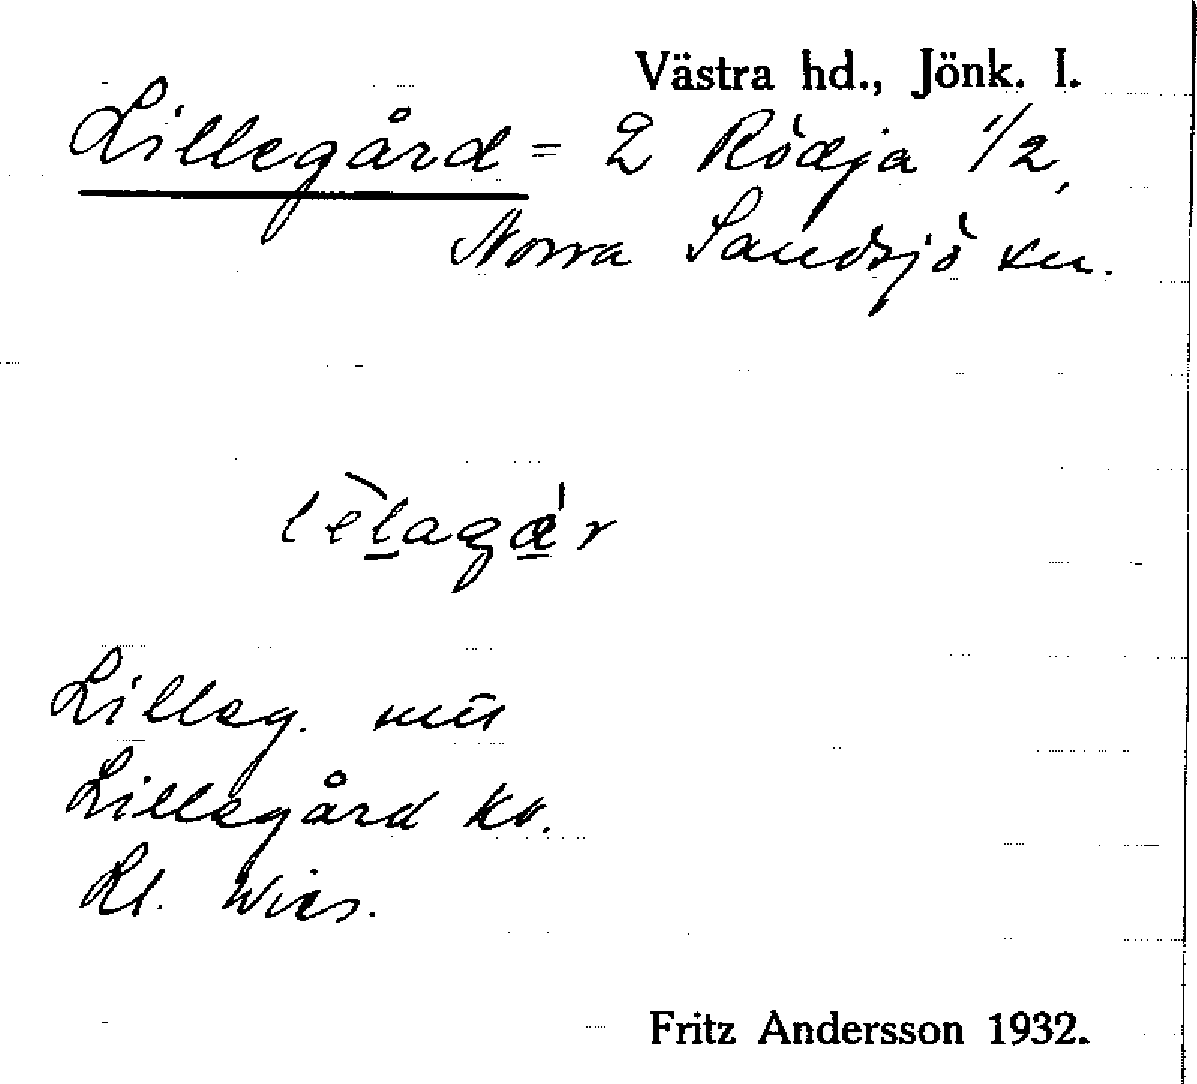 Västra hd., Jönk. l.
Lillegård = 2 Rödja 1/2,
Norra Sandsjö sn.
lèlagá̱r
Lilleg.
Lillegård kv.
Rl. Wies.
Fritz Andersson 1932.